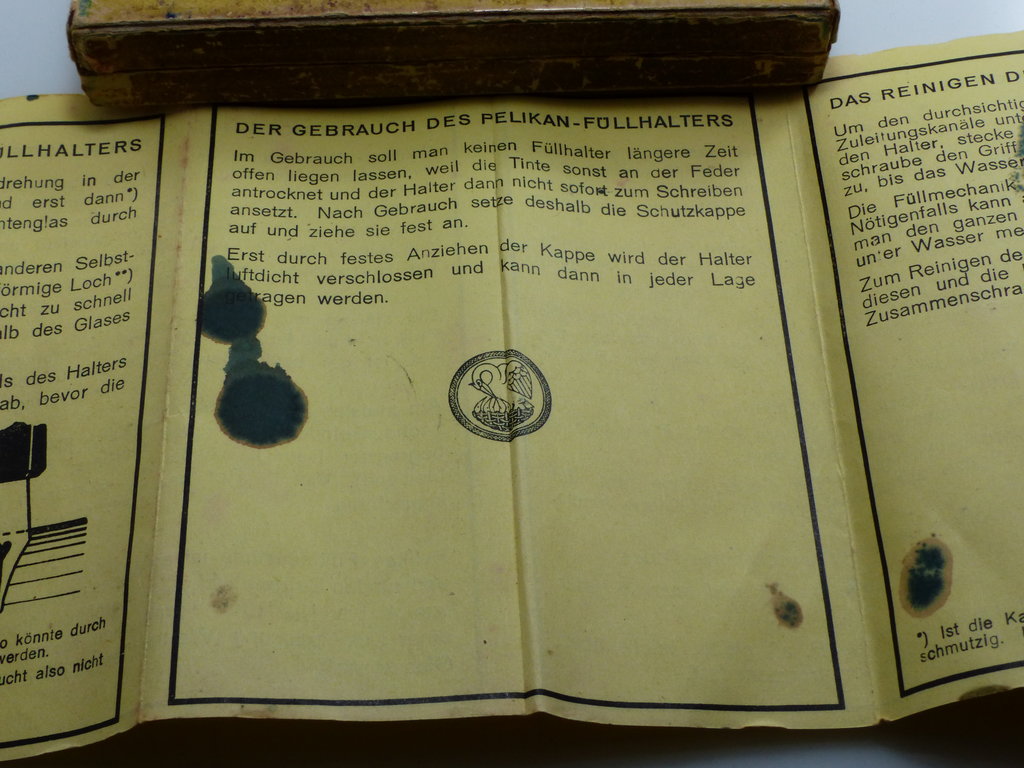 ÜLLHALTERS
drehung in der
d erst dann*)
ntenglas durch
anderen Selbst-
förmige Loch**)
cht zu schnell
alb des Glases
ls des Halters
ab, bevor die
o könnte durch
werden.
ucht also nicht
DER GEBRAUCH DES PELIKAN-FÜLLHALTERS
Im Gebrauch soll man keinen Füllhalter längere Zeit
offen liegen lassen, weil die Tinte sonst an der Feder
antrocknet und der Halter dann nicht sofort zum Schreiben
ansetzt. Nach Gebrauch setze deshalb die Schutzkappe
auf und ziehe sie fest an.
Erst durch festes Anziehen der Kappe wird der Halter
luftdicht verschlossen und kann dann in jeder Lage
getragen werden.
DAS REINIGEN D
Um den durchsichtig
Zuleitungskanäle unt
den Halter, stecke
schraube den Griff
zu, bis das Wasser
Die Füllmechanik
Nötigenfalls kann
man den ganzen
unter Wasser me
Zum Reinigen de
diesen und die
Zusammenschra
*) Ist die Ka
schmutzig.